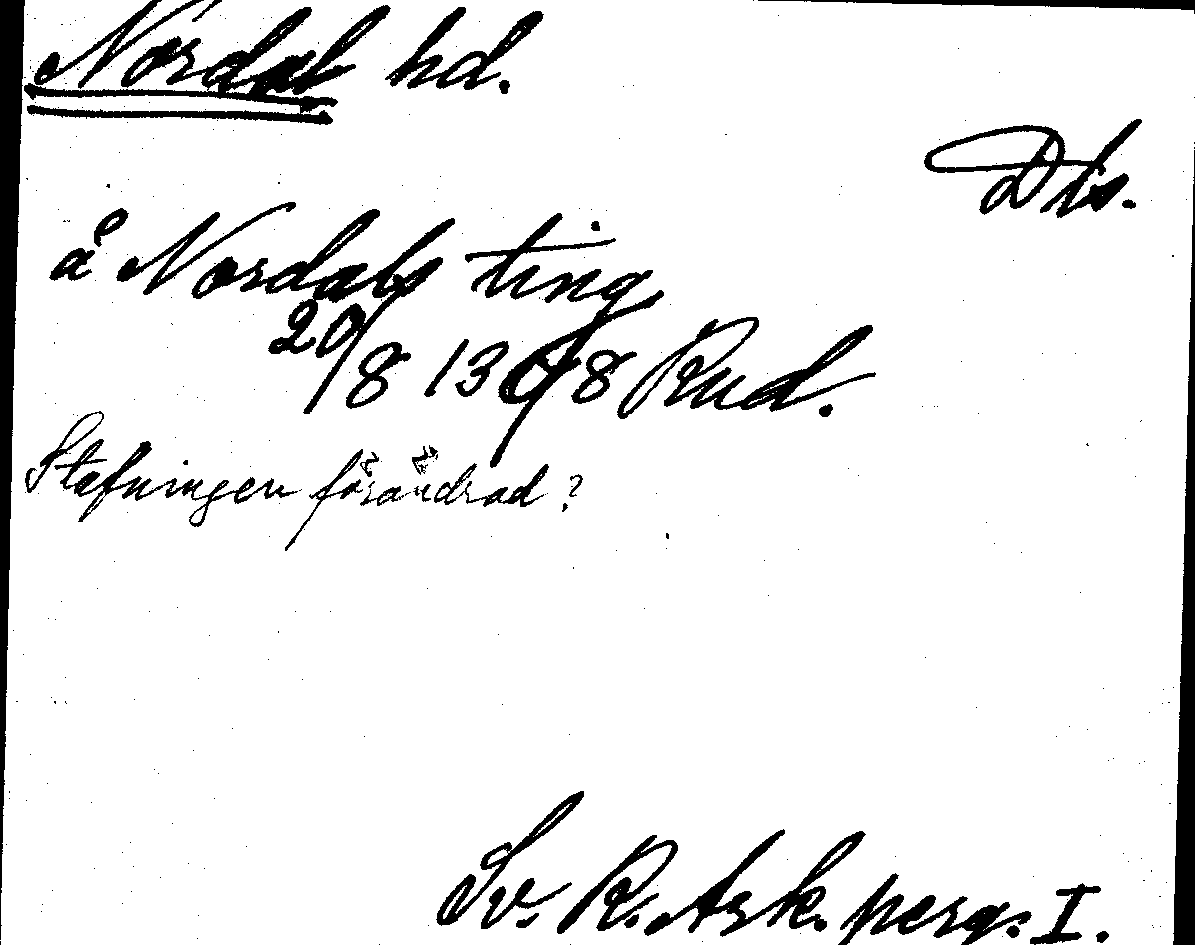 Nordal hd.
Dls.
å Nordals ting
20/8 1368 Rud.
Stafningen förändrad?
Sv. R. Ark. perg. I.